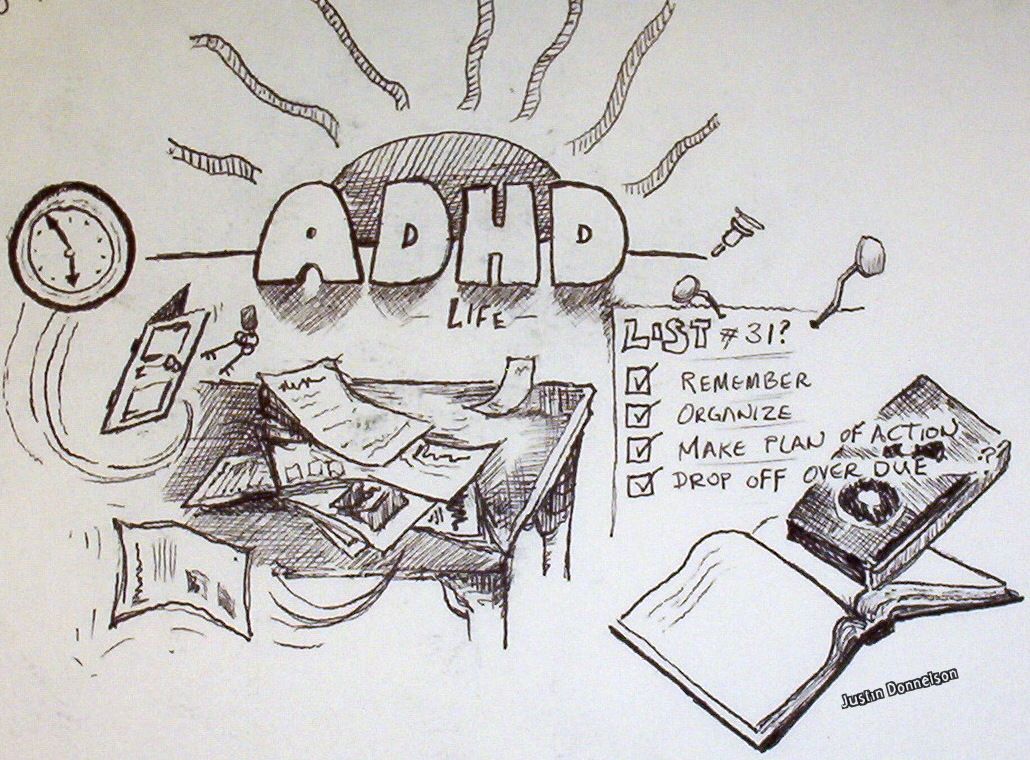 ADHD
LIFE
LIST #31?
REMEMBER
ORGANIZE
MAKE PLAN OF ACTION
DROP OFF OVER DUE
??
Justin Donnelson